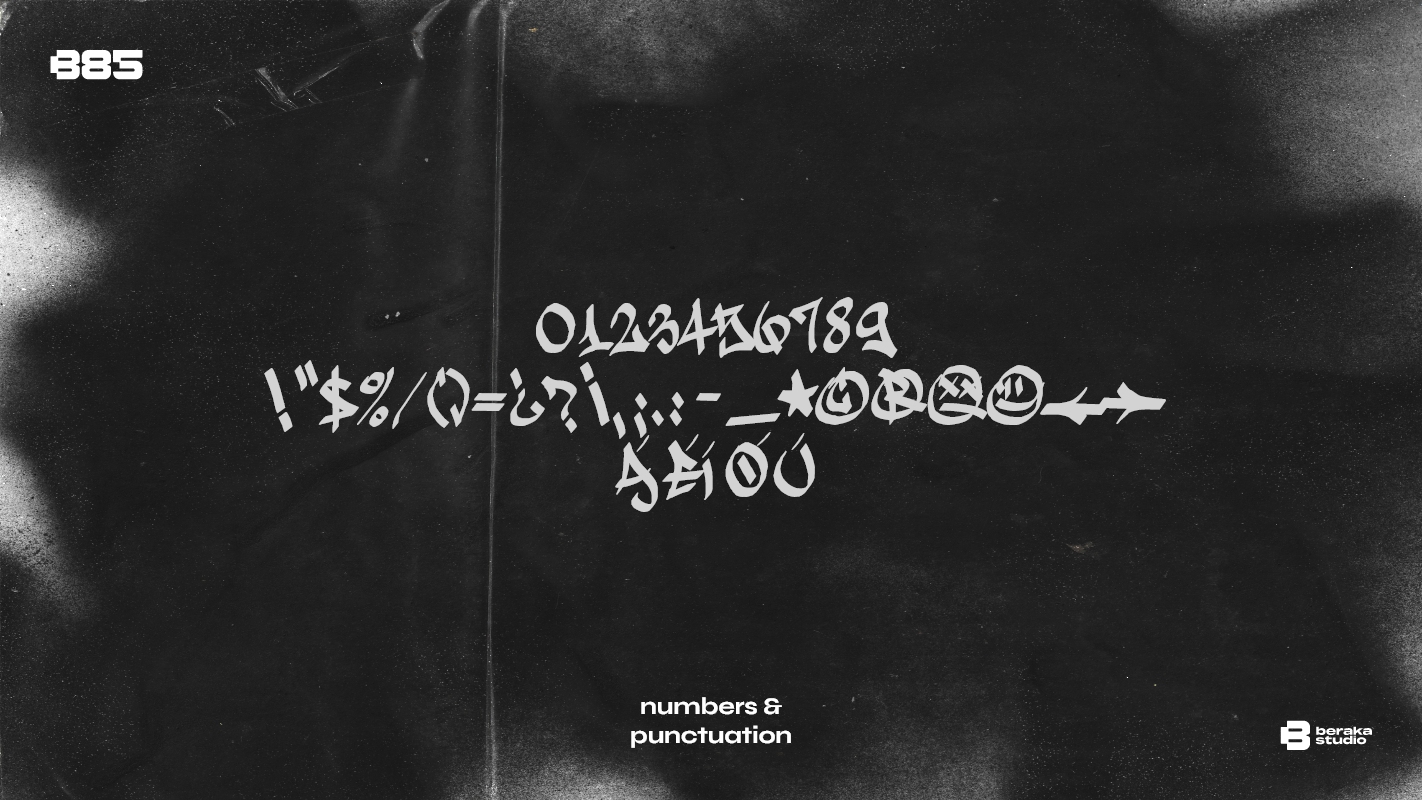 B85
0123456789
!"$%/()=¿?\,;.:-_★©®☹☺←→
ÁÉÍÓÚ
numbers &
punctuation
beraka
studio